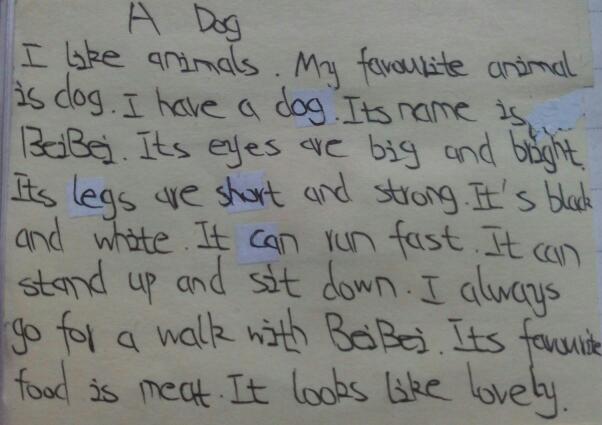 A Dog
I like animals. My favourite animal
is dog. I have a dog. Its name is
BeiBei. Its eyes are big and bright.
Its legs are short and strong. It's black
and white. It can run fast. It can
stand up and sit down. I always
go for a walk with BeiBei. Its favourite
food is meat. It looks like lovely.